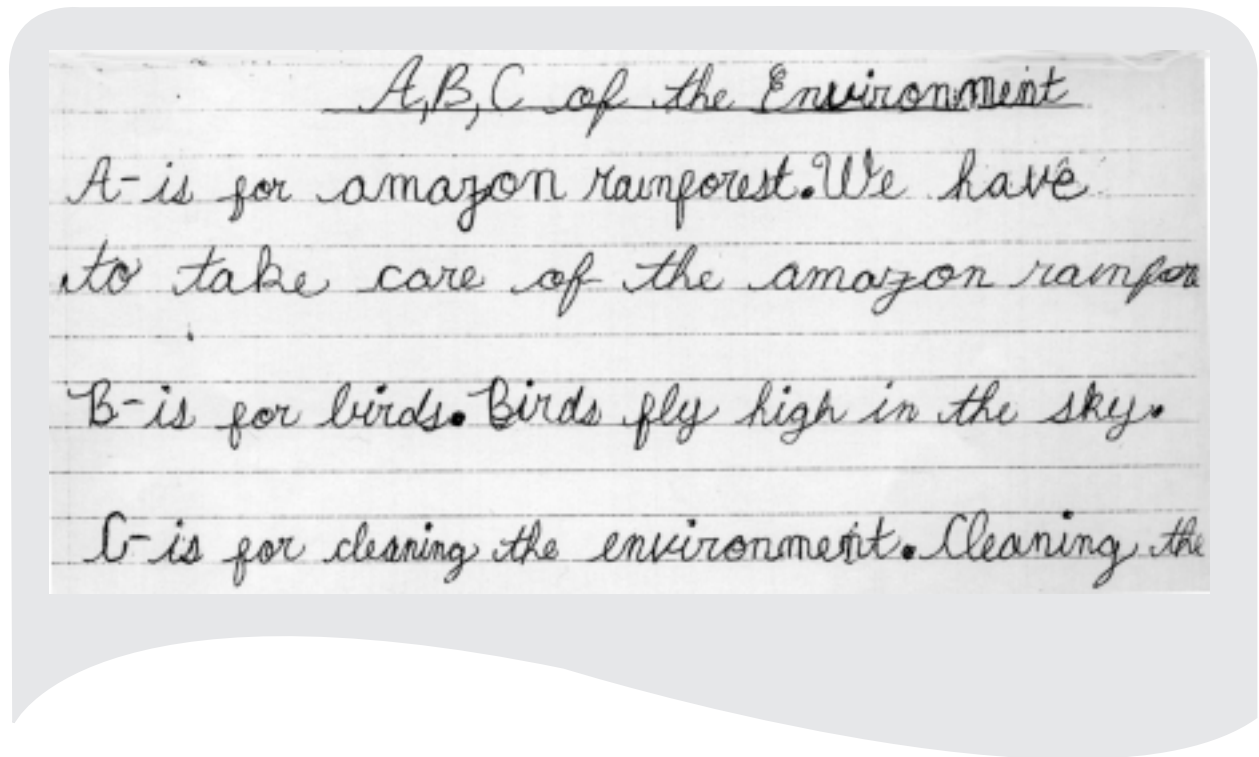 A,B,C of the Environment
A-is for amazon rainforest. We have
to take care of the amazon rainfore
B-is for birds. Birds fly high in the sky.
C-is for cleaning the environment. Cleaning the